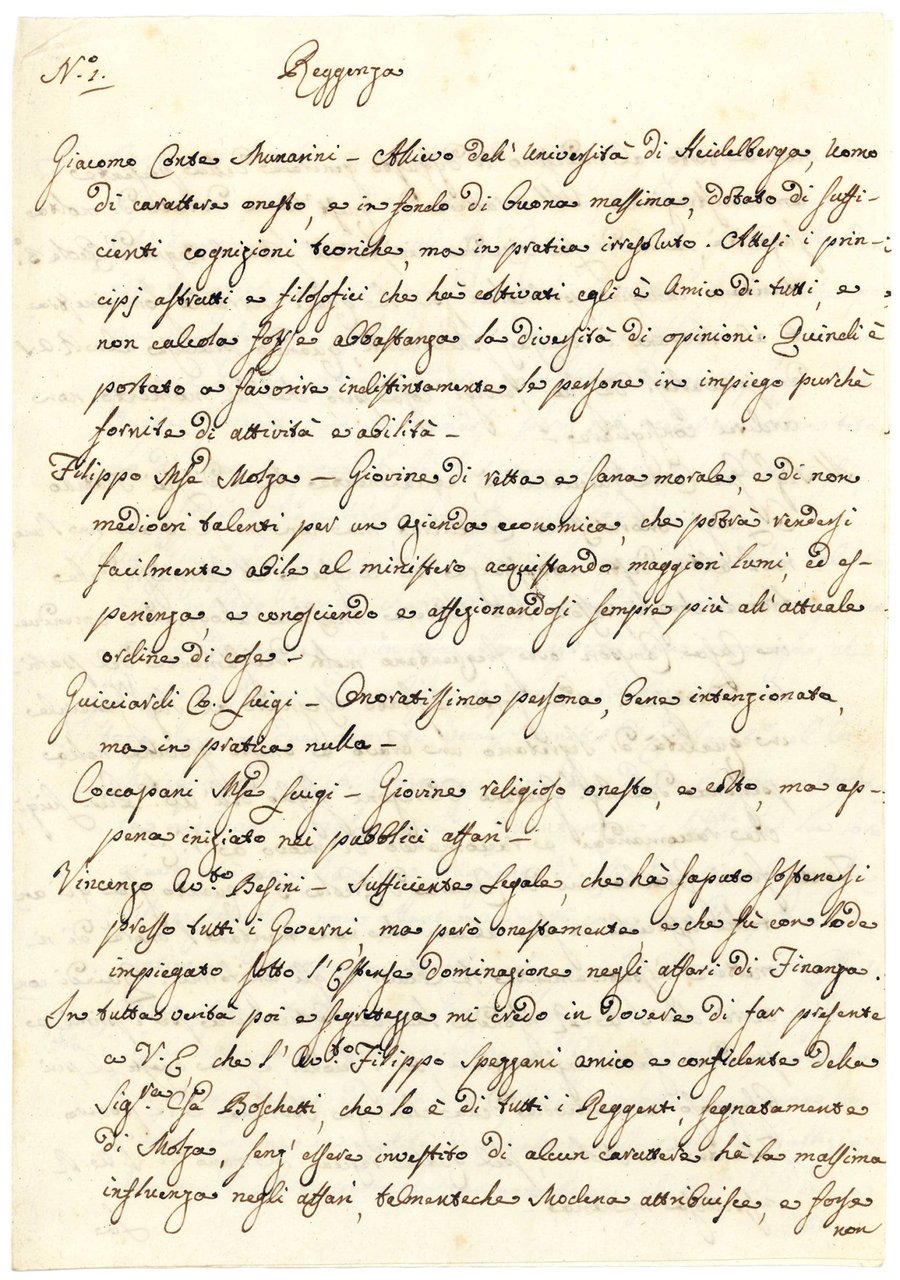 N.º 1.
Reggenza
Giacomo Conte Munarini – Allievo dell' Università di Heidelberga, Uomo
di carattere onesto, e in fondo di buona massima, dotato di suffi-
cienti cognizioni teoriche, ma in pratica irresoluto. Attesi i prin-
cipj astratti e filosofici che hà coltivati egli è Amico di tutti, e
non calcola forse abbastanza la diversità di opinioni. Quindi è
portato a favorire indistintamente le persone in impiego purchè
fornite di attività e abilità –
Filippo Mse Molza – Giovine di retta e sana morale, e di non
mediocri talenti per un azienda economica, che potrà rendersi
facilmente abile al ministero acquistando maggiori lumi, ed es-
perienza, e conosciendo e affezionandosi sempre più all' attuale
ordine di cose –
Guicciardi Co. Luigi – Onoratissima persona, bene intenzionata,
ma in pratica nulla –
Coccapani Mse Luigi – Giovine religioso onesto, e colto, ma ap-
pena iniziato nei pubblici affari –
Vincenzo Avto. Besini – Sufficiente Legale, che hà saputo sostenersi
presso tutti i Governi, ma però onestamente, e che fù con lode
impiegato sotto l'Estense dominazione negli affari di Finanza.
In tutta verità poi e segretezza mi credo in dovere di far presente
a V. E. che l' Avto. Filippo Spezzani amico e confidente della
Sigra. Csa Boschetti, che lo è di tutti i Reggenti, segnatamente
di Molza, senz' essere investito di alcun carattere hà la massima
influenza negli affari, talmenteche Modena attribuisce, e forse
non